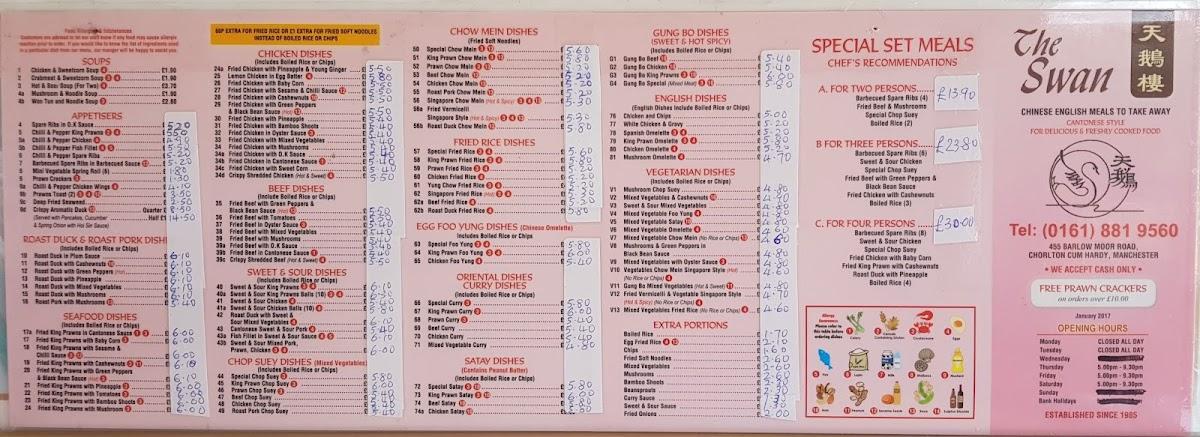 Food Allergies & Intolerances
Customers are advised to let our staff know if any food may cause allergic
reaction prior to order. If you would like to know the list of ingredients used
in a particular dish from our menu, our manger will be happy to assist you.
SOUPS
1 Chicken & Sweetcorn Soup 4 £1.90
2 Crabmeat & Sweetcorn Soup £1.90
3 Hot & Sour Soup (For Two) 4 £3.70
4a Mushroom & Noodle Soup £1.90
4b Won Tun and Noodle Soup £2.80
APPETISERS
4 Spare Ribs in O.K Sauce 5.20
5 Chilli & Pepper King Prawns 5.50
5a Chilli & Pepper Chicken
5b Chilli & Pepper Fish Fillet
6 Chilli & Pepper Spare Ribs 5.20
7 Barbecued Spare Ribs in Barbecued Sauce 5.20
Mini Vegetable Spring Roll (6) 1.80
Prawn Crackers
9a Chilli & Pepper Chicken Wings 4.10
9b Prawns Toast (2) 3.50
9c Deep Fried Seaweed 2.50
9d Crispy Aromatic Duck Quarter £ 8.50
(Served with Pancakes, Cucumber Half £ 14.50
& Spring Onion with Hoi Sin Sauce)
ROAST DUCK & ROAST PORK DISH
(Includes Boiled Rice or Chips)
10 Roast Duck in Plum Sauce 6.10
11 Roast Duck with Cashewnuts 6.10
12 Roast Duck with Green Peppers (Hot) 6.10
13 Roast Duck with Pineapple 6.10
14 Roast Duck with Mixed Vegetables 6.10
15 Roast Duck with Mushrooms 6.10
16 Roast Pork with Mushrooms 5.40
SEAFOOD DISHES
(Includes Boiled Rice or Chips)
17a Fried King Prawns in Cantonese Sauce 6.00
17 Fried King Prawns with Baby Corn 6.00
18 Fried King Prawns with Sesame &
Chilli Sauce 6.00
19 Fried King Prawns with Cashewnuts 6.10
20 Fried King Prawns with Green Peppers
& Black Bean Sauce (Hot) 6.10
21 Fried King Prawns with Pineapple 6.00
22 Fried King Prawns with Tomatoes 6.00
23 Fried King Prawns with Bamboo Shoots 6.00
24 Fried King Prawns with Mushroom 6.00
60P EXTRA FOR FRIED RICE OR £1 EXTRA FOR FRIED SOFT NOODLES
INSTEAD OF BOILED RICE OR CHIPS
CHICKEN DISHES
(Includes Boiled Rice or Chips)
24a Fried Chicken with Pineapple & Young Ginger 5.50
25 Lemon Chicken in Egg Batter 5.80
26 Fried Chicken with Baby Corn 5.50
27 Fried Chicken with Sesame & Chilli Sauce
28 Fried Chicken with Cashewnuts 5.50
29 Fried Chicken with Green Peppers
& Black Bean Sauce (Hot)
30 Fried Chicken with Pineapple 5.40
31 Fried Chicken with Tomatoes 5.40
32 Fried Chicken in Oyster Sauce 5.40
33 Fried Chicken with Mixed Vegetables 5.40
34 Fried Chicken with Mushrooms 5.40
34a Fried Chicken with O.K Sauce 5.40
34b Fried Chicken in Cantonese Sauce 5.40
34c Fried Chicken with Sweet Corn 5.40
34d Crispy Shredded Chicken (Hot & Sweet) 5.50
BEEF DISHES
(Includes Boiled Rice or Chips)
35 Fried Beef with Green Peppers &
Black Bean Sauce (Hot) 5.50
36 Fried Beef with Tomatoes
37 Fried Beef in Oyster Sauce 5.40
38 Fried Beef with Mixed Vegetables 5.40
39 Fried Beef with Mushrooms 5.40
39a Fried Beef with O.K Sauce 5.40
39b Fried Beef in Cantonese Sauce 5.40
39c Crispy Shredded Beef (Hot & Sweet) 5.50
SWEET & SOUR DISHES
(Includes Boiled Rice or Chips)
40 Sweet & Sour King Prawns 6.10
40a Sweet & Sour King Prawns Balls (10) 6.30
41 Sweet & Sour Chicken 5.40
41a Sweet & Sour Chicken Balls (10) 5.80
42 Roast Duck with Sweet &
Sour Mixed Vegetables 6.10
43 Cantonese Sweet & Sour Pork 5.40
43a Fish Fillet in Sweet & Sour Sauce
43b Sweet & Sour Mixed Pork,
Prawn, Chicken 6.00
CHOP SUEY DISHES (Mixed Vegetables)
(Includes Boiled Rice or Chips)
44 Special Chop Suey 5.80
45 King Prawn Chop Suey 6.00
46 Prawn Chop Suey
47 Beef Chop Suey 5.40
48 Chicken Chop Suey 5.40
49 Roast Pork Chop Suey 5.40
CHOW MEIN DISHES
(Fried Soft Noodles)
50 Special Chow Mein 5.60
51 King Prawn Chow Mein 5.80
52 Prawn Chow Mein
53 Beef Chow Mein 5.20
54 Chicken Chow Mein 5.20
55 Roast Pork Chow Mein 5.20
56 Singapore Chow Mein (Hot & Spicy) 5.30
56a Fried Vermicelli
Singapore Style (Hot & Spicy) 5.30
56b Roast Duck Chow Mein 5.80
FRIED RICE DISHES
57 Special Fried Rice 5.60
58 King Prawn Fried Rice 5.80
59 Prawn Fried Rice
60 Chicken Fried Rice 5.20
61 Yung Chow Fried Rice
62 Singapore Fried Rice (Hot) 5.30
62a Beef Fried Rice
62b Roast Duck Fried Rice 5.80
EGG FOO YUNG DISHES (Chinese Omelette)
(Includes Boiled Rice or Chips)
63 Special Foo Yung 5.80
64 King Prawn Foo Yung 6.00
65 Chicken Foo Yung 5.40
ORIENTAL
CURRY DISHES
(Includes Boiled Rice or Chips)
66 Special Curry 5.80
67 King Prawn Curry 6.00
68 Prawn Curry
69 Beef Curry 5.40
70 Chicken Curry 5.40
71 Mixed Vegetable Curry 4.80
SATAY DISHES
(Contains Peanut Butter)
(Includes Boiled Rice or Chips)
72 Special Satay 5.80
73 King Prawn Satay 6.00
74 Beef Satay
74a Chicken Satay
GUNG BO DISHES
(SWEET & HOT SPICY)
(Includes Boiled Rice or Chips)
G1 Gung Bo Beef 5.40
G2 Gung Bo Chicken 5.40
G3 Gung Bo King Prawns 6.00
G4 Gung Bo Special (Mixed Meat) 5.80
ENGLISH DISHES
(English Dishes Includes Boiled Rice or Chips)
76 Chicken and Chips 5.00
77 White Chicken & Gravy 5.20
78 Spanish Omelette 5.20
79 King Prawn Omelette
80 Chicken Omelette 5.20
81 Mushroom Omelette 4.70
VEGETARIAN DISHES
(Includes Boiled Rice or Chips)
V1 Mushroom Chop Suey 4.80
V2 Mixed Vegetables & Cashewnuts
V3 Sweet & Sour Mixed Vegetables 4.80
V4 Mixed Vegetable Foo Yung 4.80
V5 Mixed Vegetable Satay
V6 Mixed Vegetable Curry 4.80
V7 Mixed Vegetable Chow Mein (No Rice or Chips) 4.60
V8 Mushrooms & Green Peppers in
Black Bean Sauce 4.80
V9 Mixed Vegetables with Oyster Sauce 4.80
V10 Vegetables Chow Mein Singapore Style (Hot)
(No Rice or Chips)
V11 Gung Bo Mixed Vegetables (Hot & Sweet) 4.80
V12 Fried Vermicelli & Vegetable Singapore Style
(Hot & Spicy) (No Rice or Chips) 4.70
V13 Mixed Vegetables Fried Rice (No Rice or Chips) 4.60
EXTRA PORTIONS
Boiled Rice
Egg Fried Rice
Chips
Fried Soft Noodles
Mixed Vegetables
Mushrooms
Bamboo Shoots
Beansprouts
Curry Sauce
Sweet & Sour Sauce
Fried Onions 2.00
SPECIAL SET MEALS
CHEF'S RECOMMENDATIONS
A. FOR TWO PERSONS £13.90
Barbecued Spare Ribs (4)
Fried Beef & Mushrooms
Special Chop Suey
Boiled Rice (2)
B FOR THREE PERSONS £23.80
Barbecued Spare Ribs (6)
Sweet & Sour Chicken
Special Chop Suey
Fried Beef with Green Peppers &
Black Bean Sauce
Fried Chicken with Cashewnuts
Boiled Rice (3)
C. FOR FOUR PERSONS £30.00
Barbecued Spare Ribs (8)
Sweet & Sour Chicken
Special Chop Suey
Fried Chicken with Baby Corn
Fried King Prawn with Cashewnuts
Roast Duck with Pineapple
Boiled Rice (4)
Allergy
Awareness
Please refer to
this table
before
ordering dishes
1 Celery
2 Cereals Containing Gluten
3 Crustaceans
4 Eggs
5 Fish
6 Lupin
7 Milk
8 Molluscs
9 Mustard
10 Nuts
11 Peanuts
12 Sesame Seeds
13 Soya
14 Sulphur Dioxide
The
Swan
天鵝樓
CHINESE ENGLISH MEALS TO TAKE AWAY
CANTONESE STYLE
FOR DELICIOUS & FRESHLY COOKED FOOD
天鵝
Tel: (0161) 881 9560
455 BARLOW MOOR ROAD,
CHORLTON CUM HARDY, MANCHESTER
• WE ACCEPT CASH ONLY •
FREE PRAWN CRACKERS
on orders over £10.00
January 2017
OPENING HOURS
Monday CLOSED ALL DAY
Tuesday CLOSED ALL DAY
Wednesday
Thursday 5.00pm - 9.30pm
Friday 5.00pm - 9.30pm
Saturday 5.00pm - 9.30pm
Sunday
Bank Holidays
ESTABLISHED SINCE 1985